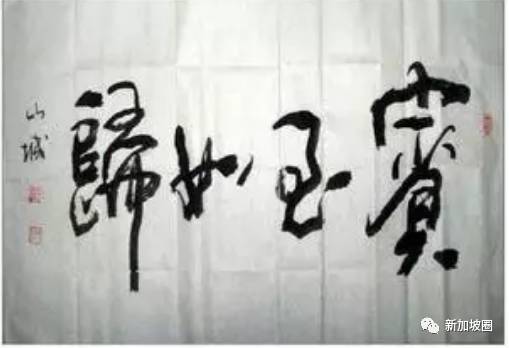 賓至如歸
山城
新加坡圈